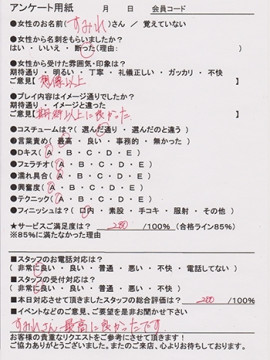 アンケート用紙　月　日　会員コード
●女性のお名前(すみれ)さん / 覚えていない
●女性から名刺をもらいましたか?
はい・いいえ・断った(理由:　)
●女性から受けた雰囲気・印象は?
期待通り・明るい・丁寧・礼儀正しい・ガッカリ・不快
ご意見[想像以上]
●プレイ内容はイメージ通りでしたか?
期待通り・イメージと違った
ご意見[期待以上に良かった]
●コスチュームは?(選んだ通り・選んだのと違う)
●言葉責め(最高・良い・事務的・無かった)
●Dキス(A・B・C・D・E)
●フェラチオ(A・B・C・D・E)
●濡れ具合(A・B・C・D・E)
●興奮度(A・B・C・D・E)
●テクニック(A・B・C・D・E)
●フィニッシュは?(口内・素股・手コキ・服射・その他)
★サービスご満足度は? 200 /100% (合格ライン85%)
※85%に満たなかった理由
■スタッフのお電話対応は?
(非常に良い・良い・普通・悪い・不快・電話してない)
■スタッフの受付対応は?
(非常に良い・良い・普通・悪い・不快)
■本日対応させて頂きましたスタッフの総合評価は? 200 /100%
■イベントなどのご意見、ご要望を是非お聞かせ下さい
すみれさん最高に良かったです
お客様の貴重なリクエストをご参考にさせて頂きます!
ご協力ありがとうございました。またのご来店、心よりお待ちしております。